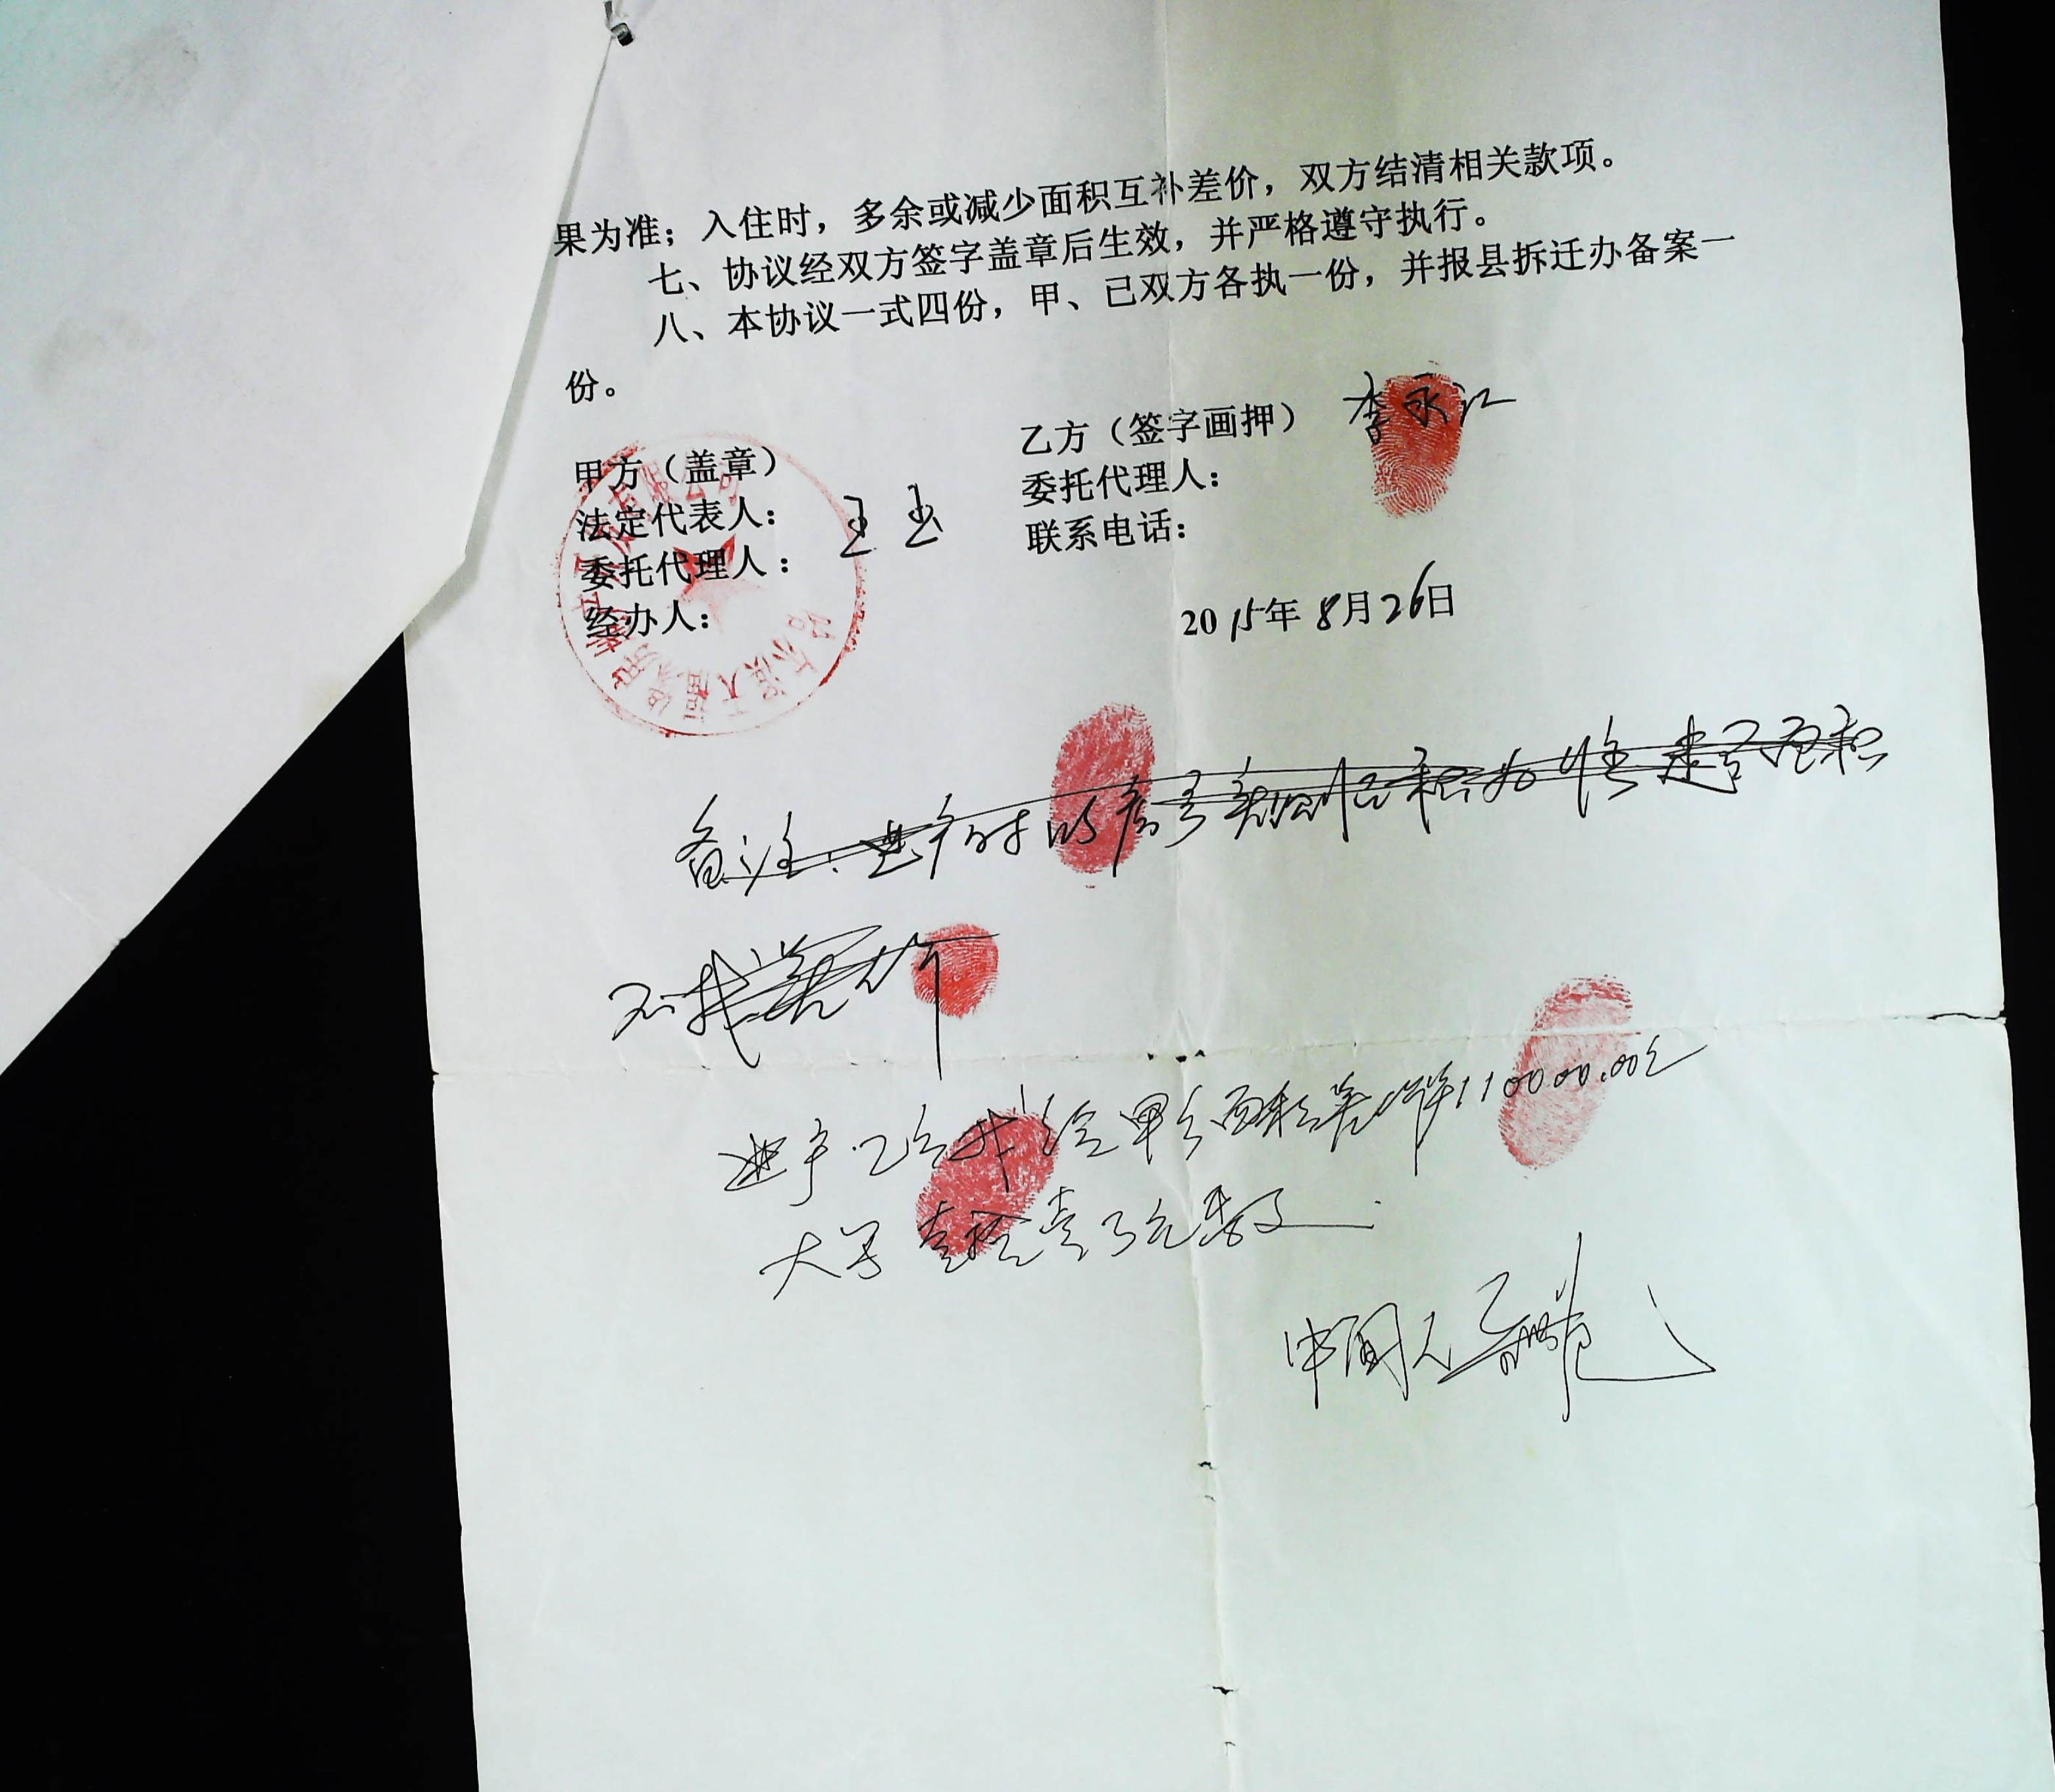 果为准；入住时，多余或减少面积互补差价，双方结清相关款项。
七、协议经双方签字盖章后生效，并严格遵守执行。
八、本协议一式四份，甲、已双方各执一份，并报县拆迁办备案一
份。
甲方（盖章）
法定代表人：
委托代理人：
经办人：
王
乙方（签字画押） 李永江
委托代理人：
联系电话：
2015年8月26日
备注：进户时以
不找差价
进户乙方找给甲方面积差价110000.00元
大写壹拾壹万元整
中间人